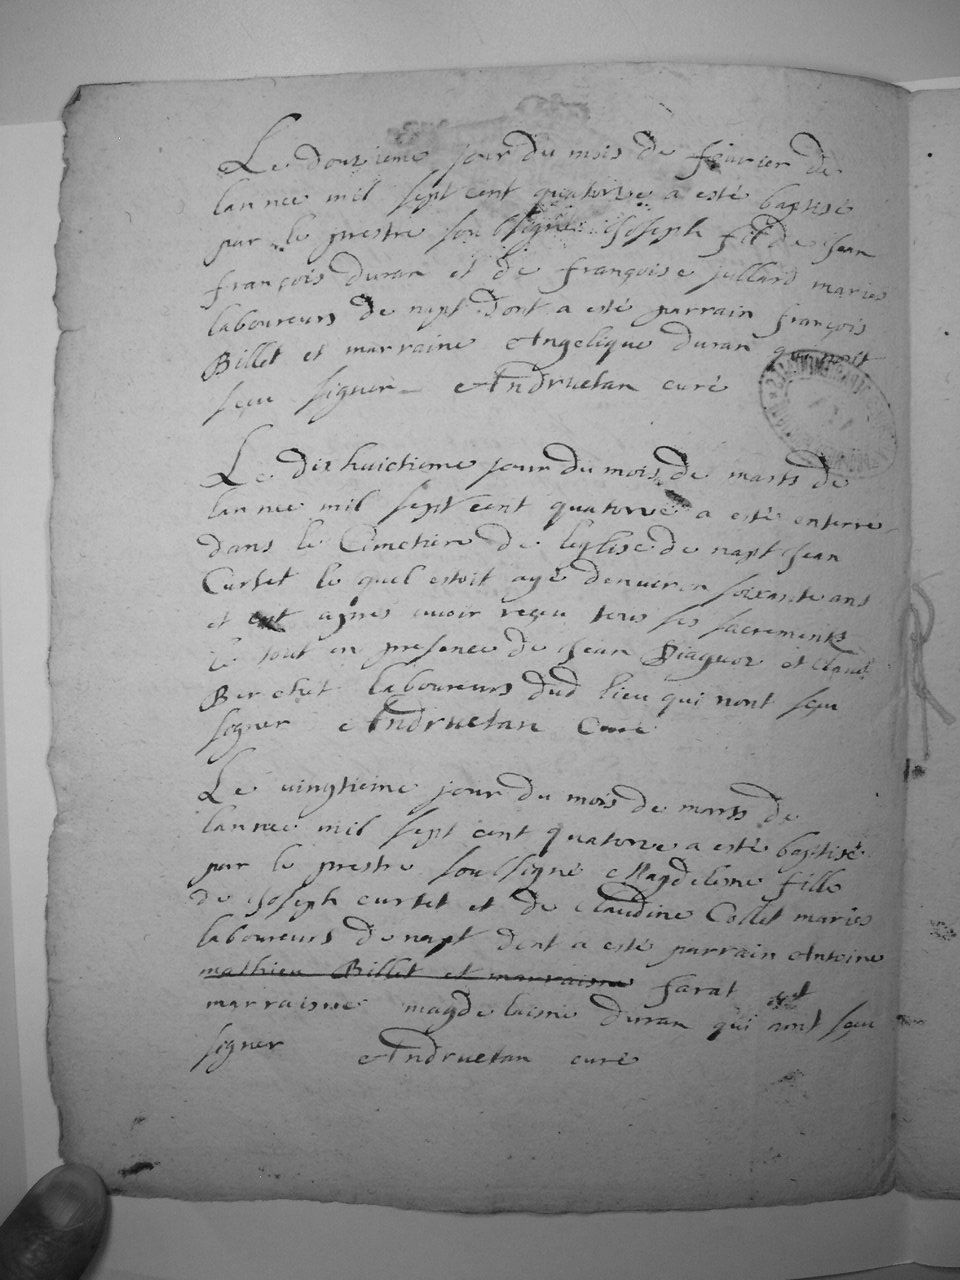 Le douzieme jour du mois de fevrier de
lannee mil sept cent quatorze a esté baptisé
par le prestre soubsigné Joseph fil de Jean
françois duran et de françoise jullard maries
laboureurs de napt dont a esté parrain françois
Billet et marraine Angelique duran qui nont
sçeu signer Andruetan curé
Le dix huictieme jour du mois de marts de
lannee mil sept cent quatorze a esté enterré
dans le Cimetiere de leglise de napt Jean
Curtet le quel estoit agé denuiron soixante ans
et apres auoir reçeu tous ses sacrements
le tout en presence de Jean et Claude
Berchet laboureurs dud lieu qui nont sçeu
signer Andruetan Curé
Le vingtieme jour du mois de marts de
lannee mil sept cent quatorze a esté baptisé
par le prestre soubsigné Magdeleine fille
de Joseph curtet et de claudine Collet maries
laboureurs de napt dont a esté parrain Antoine
mathieu Billet et marraine farat et
marraisne magdelaisne duran qui ont sçeu
signer Andruetan curé